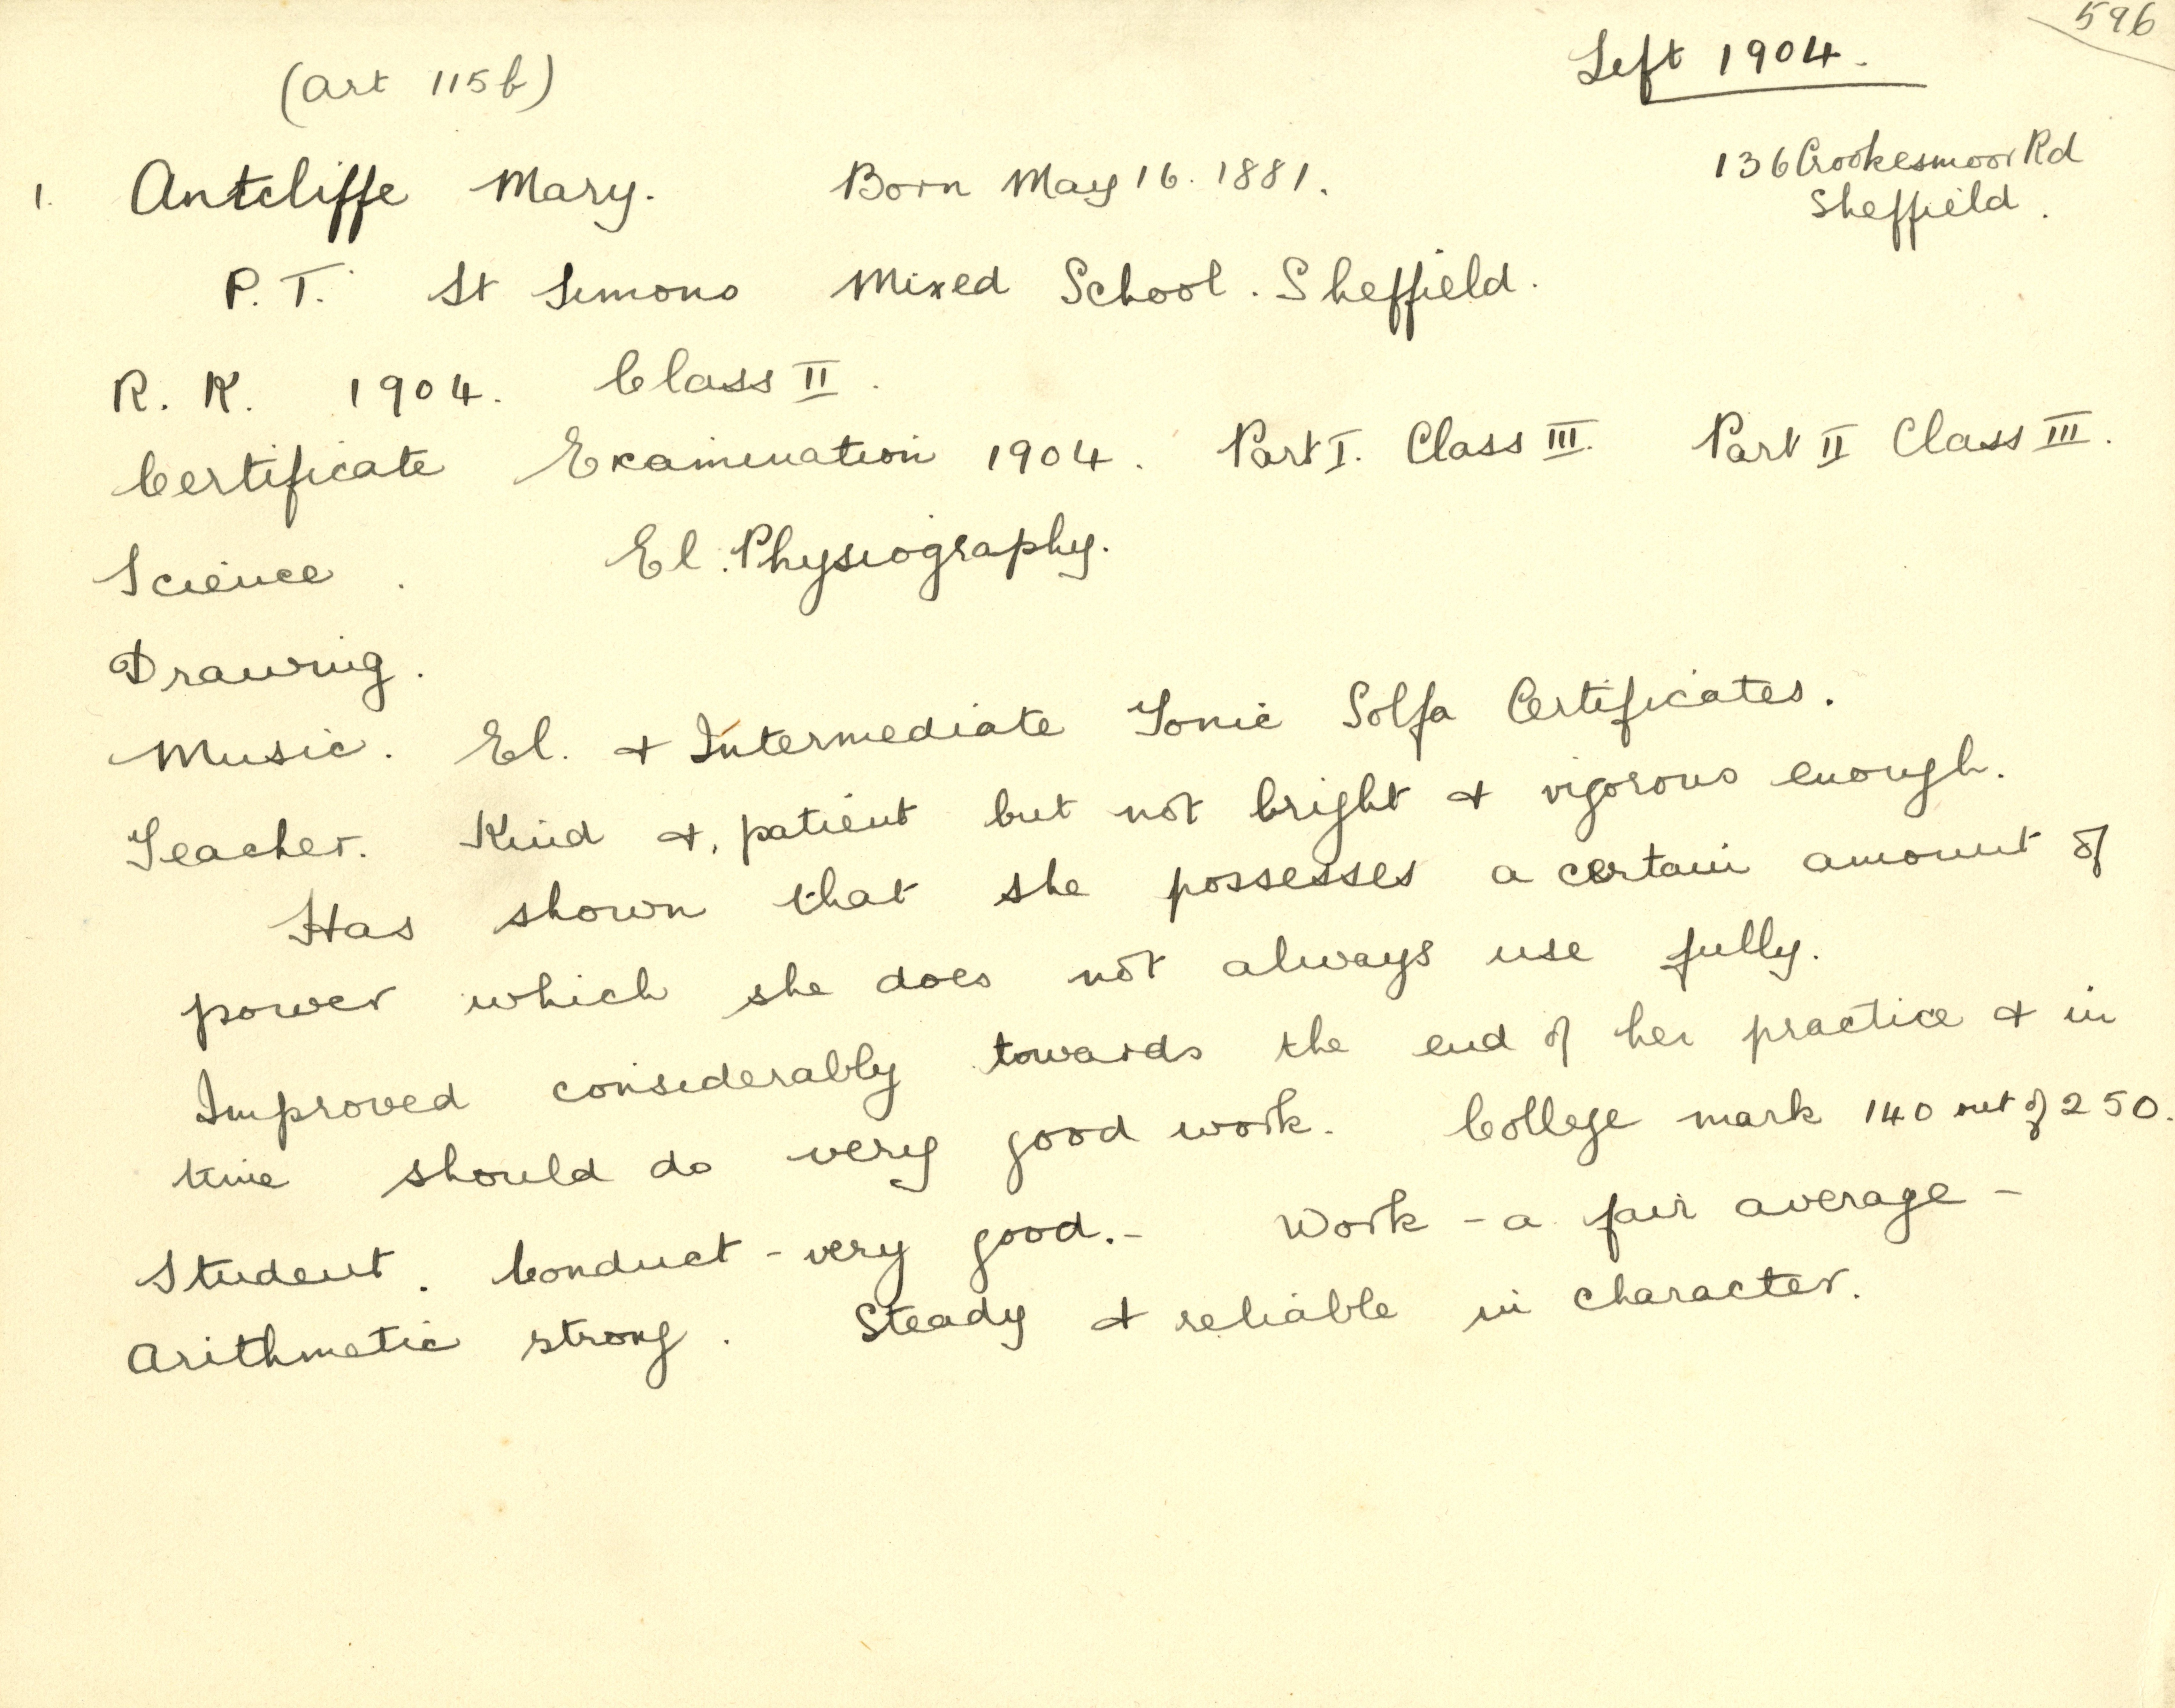 596
Left 1904.
(Art 115b)
136 Crookesmoor Rd
Sheffield.
1. Antcliffe Mary. Born May 16. 1881.
P.T. St Simons Mixed School. Sheffield.
R. K. 1904. Class II.
Certificate Examination 1904. Part I. Class III. Part II Class III.
Science. El. Physiography.
Drawing.
Music. El. & Intermediate Tonic Solfa Certificates.
Teacher. Kind & patient but not bright & vigorous enough.
Has shown that she possesses a certain amount of
power which she does not always use fully.
Improved considerably towards the end of her practice & in
time should do very good work. College mark 140 out of 250.
Student. Conduct - very good. - Work - a fair average -
Arithmetic strong. Steady & reliable in character.